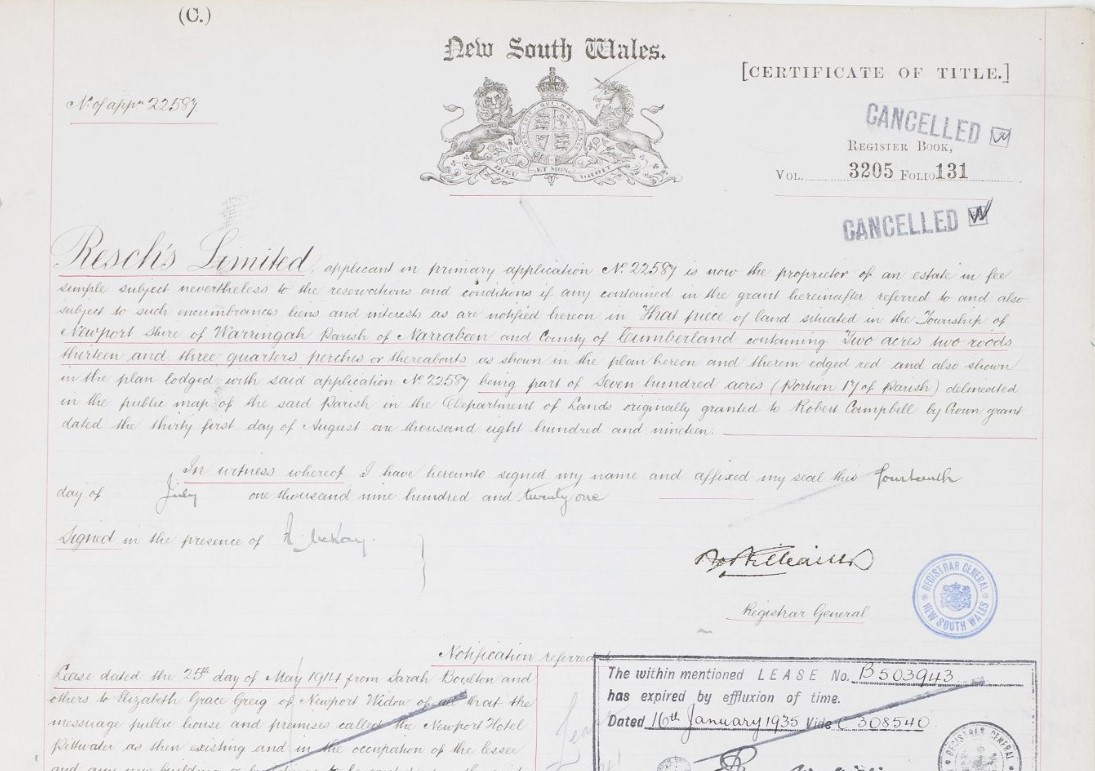 (C.)
New South Wales.
[CERTIFICATE OF TITLE.]
No. of appn 22587
CANCELLED
REGISTER BOOK,
VOL. 3205 FOLIO 131
DIEU ET MON DROIT
CANCELLED
Resch's Limited, applicant in primary application No. 22587 is now the proprietor of an estate in fee
simple subject nevertheless to the reservations and conditions if any contained in the grant hereinafter referred to and also
subject to such encumbrances liens and interests as are notified hereon in That piece of land situated in the Township of
Newport Shire of Warringah Parish of Narrabeen and County of Cumberland containing Two acres two roods
thirteen and three quarters perches or thereabouts as shown in the plan hereon and therein edged red and also shown
in the plan lodged with said application No. 22587 being part of Seven hundred acres (Portion 17 of Parish) delineated
in the public map of the said Parish in the Department of Lands originally granted to Robert Campbell by Crown grant
dated the thirty first day of August one thousand eight hundred and nineteen.
In witness whereof I have hereunto signed my name and affixed my seal this fourteenth
day of July one thousand nine hundred and twenty one
Signed in the presence of
Registrar General
REGISTRAR GENERAL NEW SOUTH WALES
Notification referred
Lease dated the 25th day of May 1914 from Sarah Boulton and
others to Elizabeth Grace Greig of Newport Widow of all that the
messuage public house and premises called the Newport Hotel
Pittwater as then existing and in the occupation of the lessee
The within mentioned LEASE No. B503943
has expired by effluxion of time.
Dated 16th January 1935 Vide C 308540
REGISTRAR GENERAL